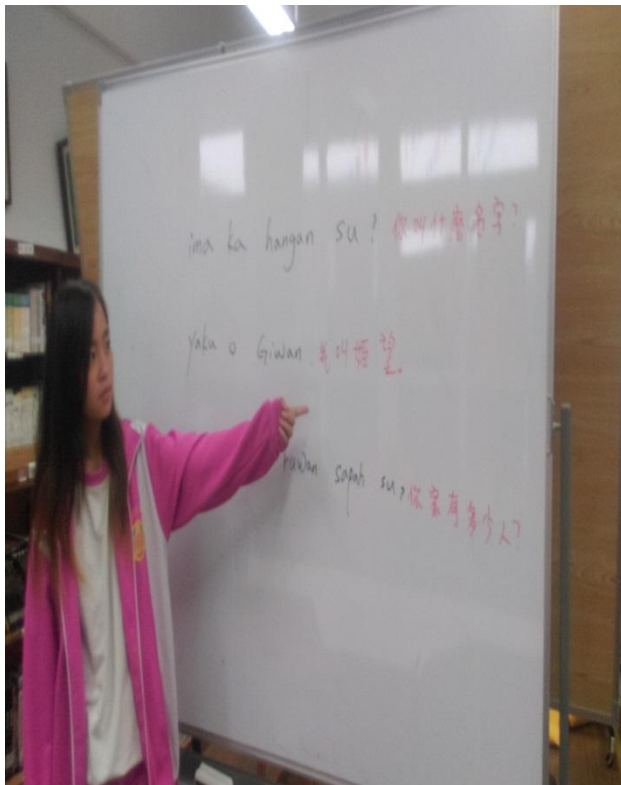 ima ka hangan su? 你叫什麼名字?
yaku o Giwan 我叫姬望。
ruwan sapah su, 你家有多少人?